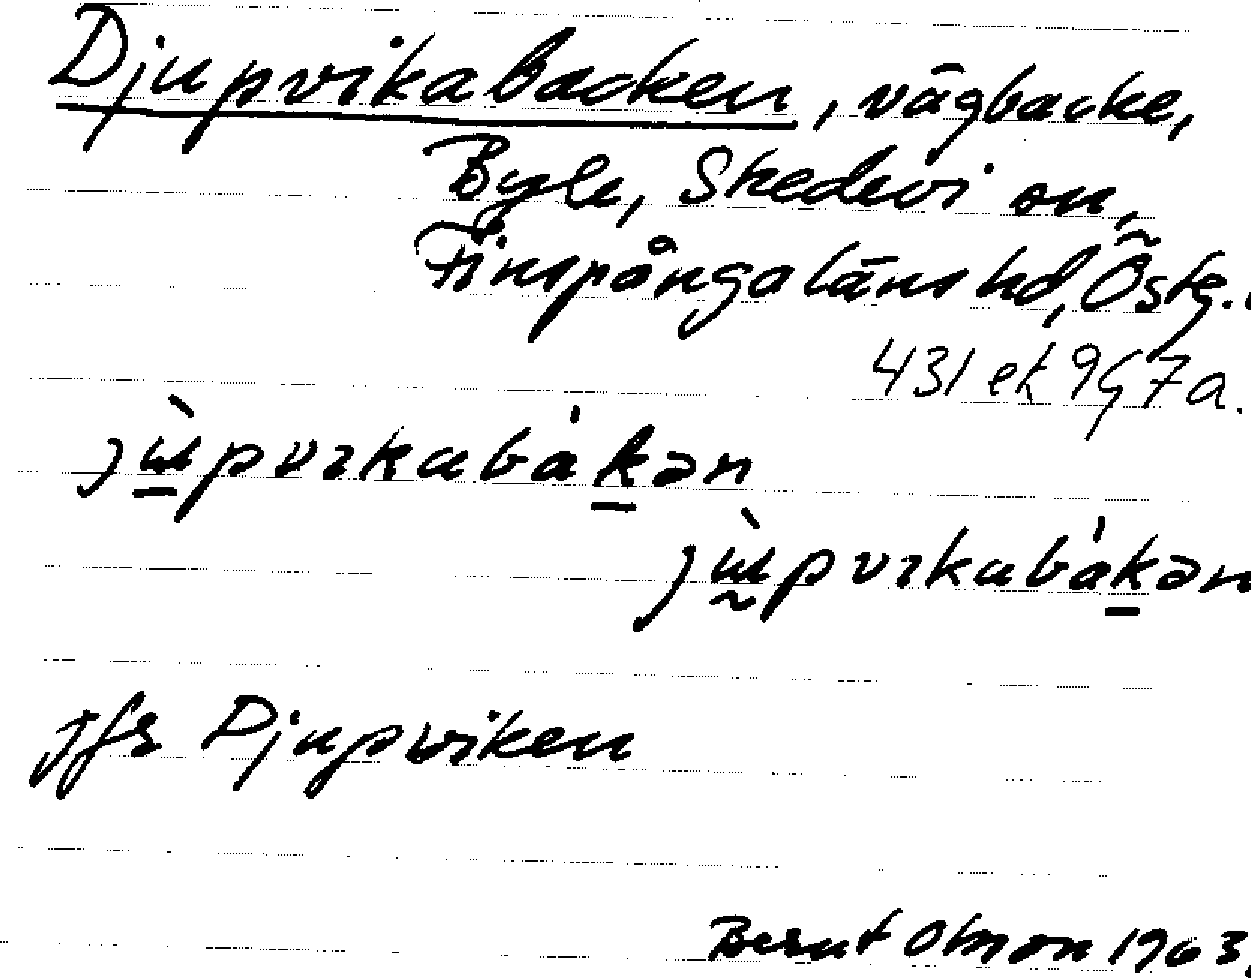 Djupvikabacken, vägbacke,
Byle, Skedevi sn,
Finspånga läns hd, Östg.
431 ek 9g7a.
jɯ̀pvɪkabákən
jɯ̀pvɪkabákən
jfr Djupviken
Bernt Olsson 1963.